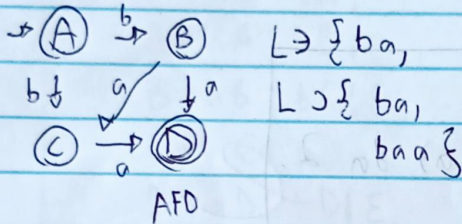 → A b → B L∋{ba,
b↓ a ↓a L⊃{ba,
C → D baa}
a
AFD